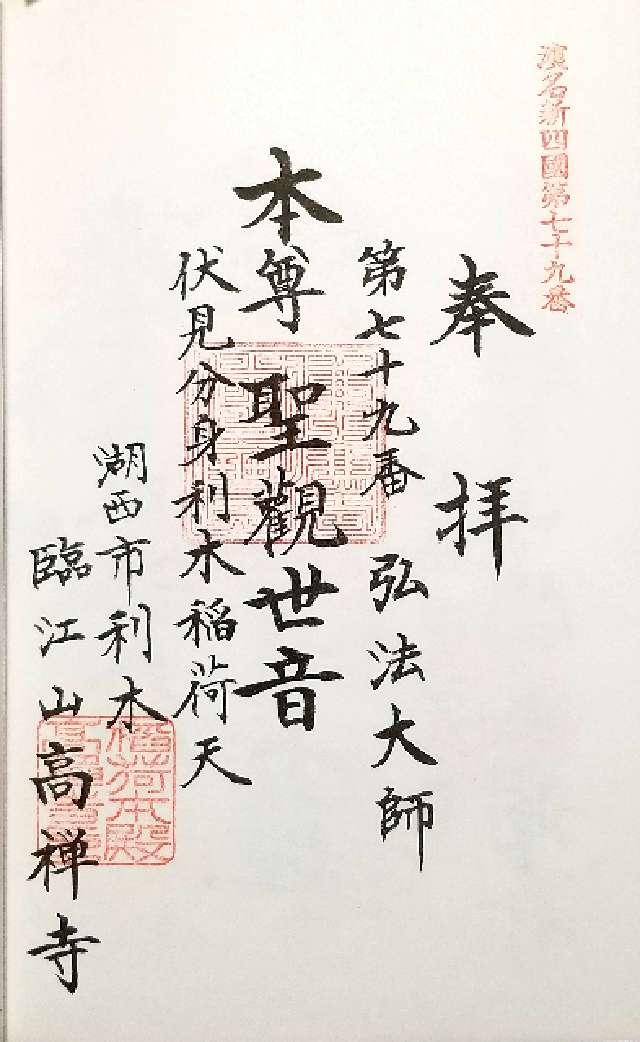 濱名新四國第七十九番
奉拝
第七十九番 弘法大師
本尊 聖觀世音
伏見分身利木稲荷天
湖西市利木
臨江山高禅寺
稲荷本殿